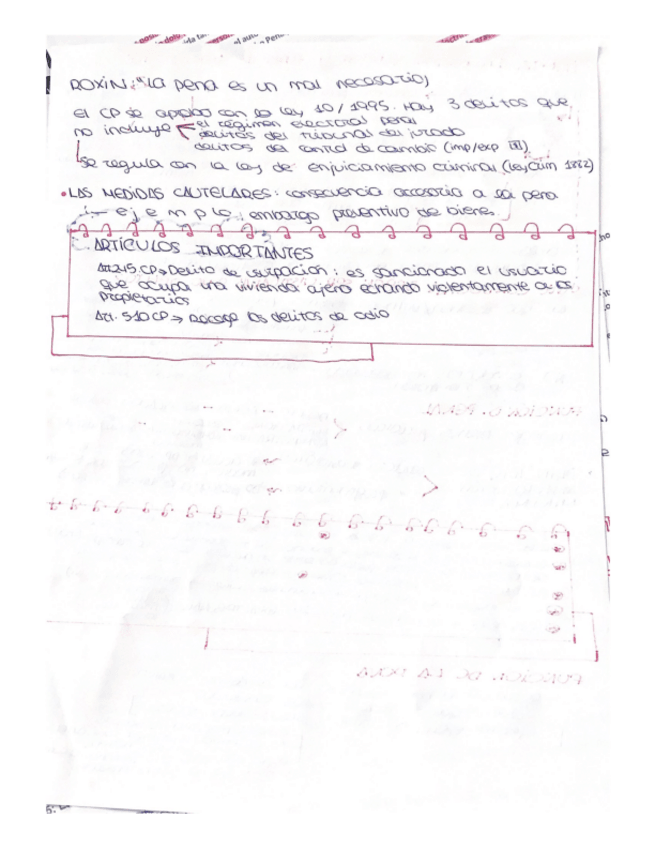 ROXIN: "La pena es un mal necesario"
el CP se aprobó con la ley 10/1995. Hay 3 delitos que
no incluye el régimen electoral penal
delitos del tribunal del jurado
delitos del control de cambio (imp/exp
se regula con la ley de enjuiciamiento criminal (LeyCrim 1882)
• LAS MEDIDAS CAUTELARES: consecuencia accesoria a la pena
ejemplo: embargo preventivo de bienes.
ARTÍCULOS IMPORTANTES
Art.245 CP → Delito de usurpación: es sancionado el usuario
que ocupa una vivienda ajena echando violentamente a los
propietarios
Art. 510 CP → Recoge los delitos de odio